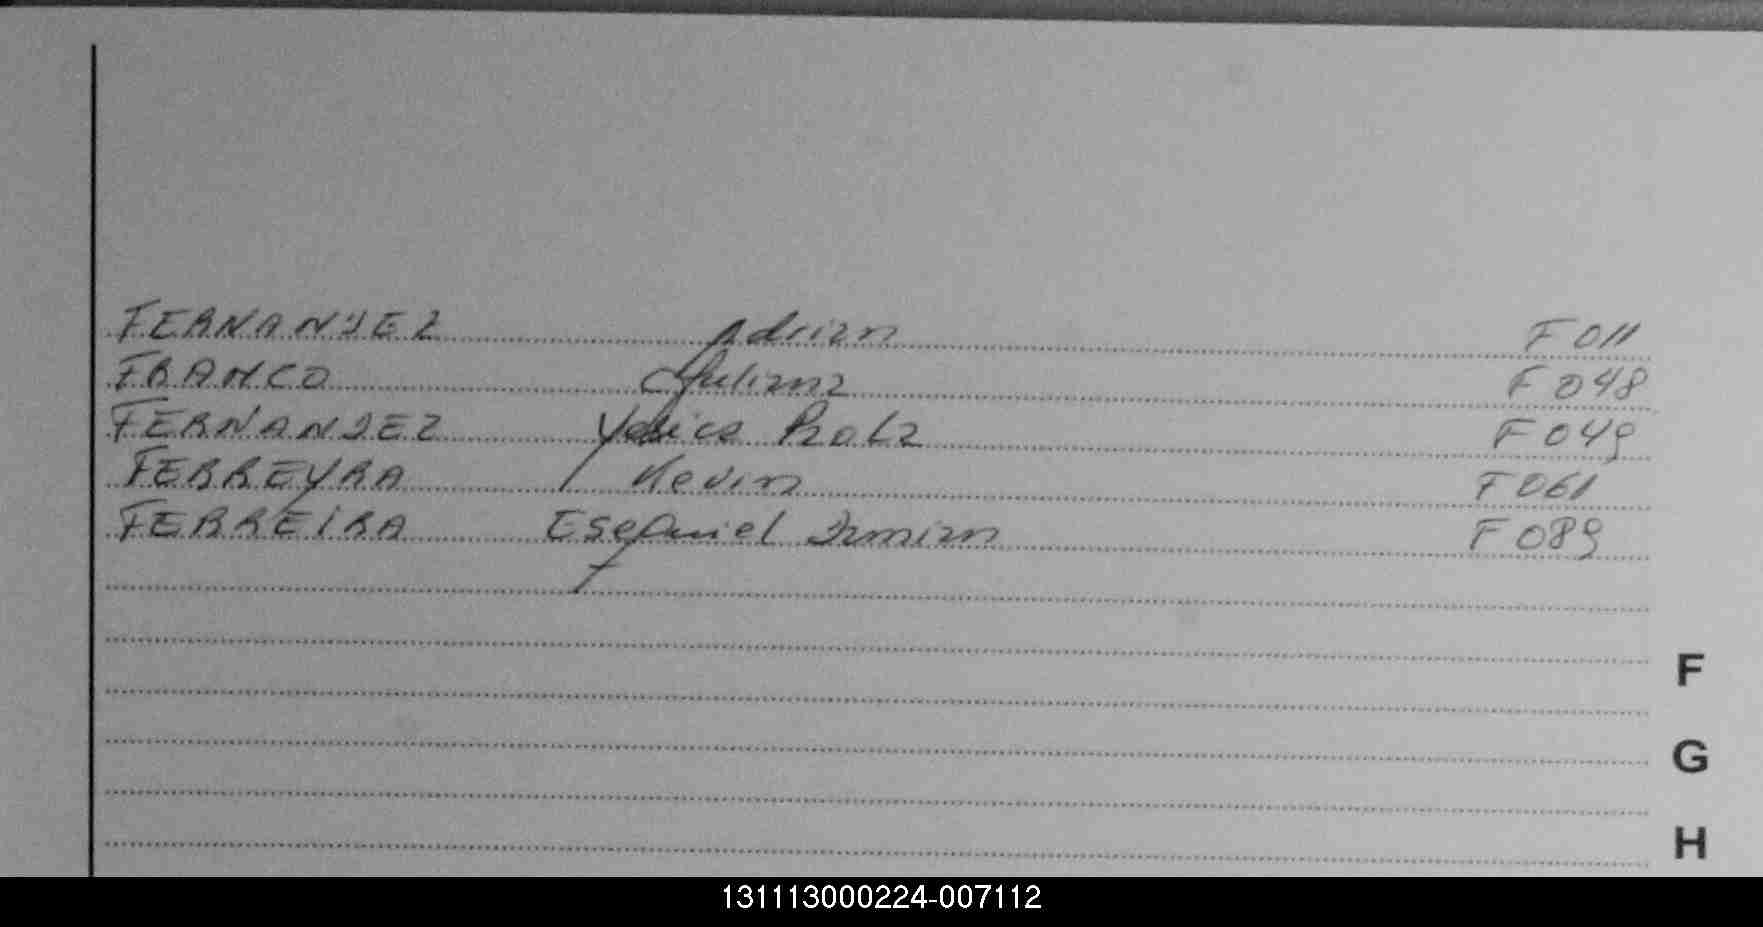 FERNANDEZ Adrian F 011
FRANCO Juliana F 048
FERNANDEZ Yesica F 049
FERREYRA Kevin F 061
FERREIRA Esequiel Damian F 089
F
G
H
131113000224-007112